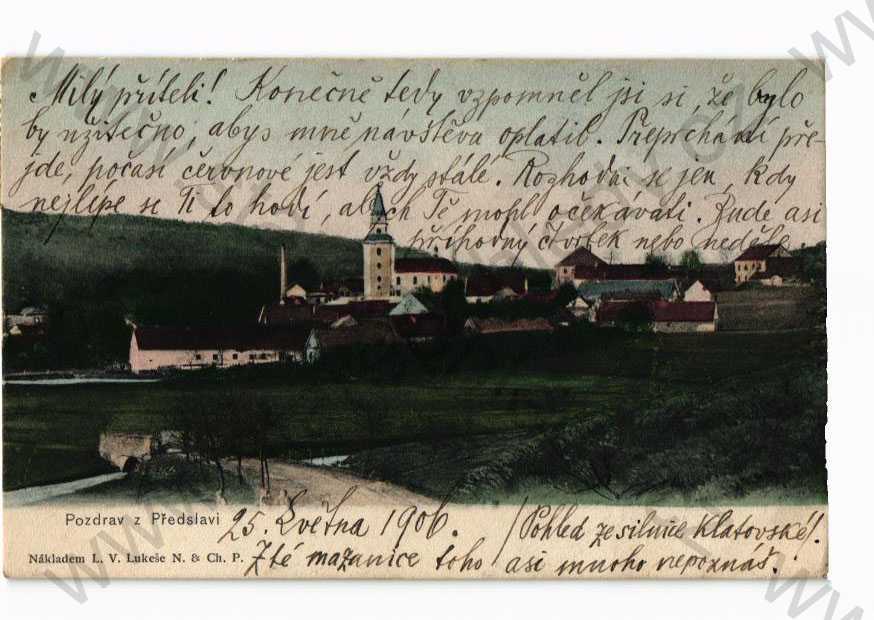 Milý příteli! Konečně tedy vzpomněl jsi si, že bylo
by užitečno, abys mně návštěvu oplatil. Přeprchání pře-
jde, počasí červnové jest vždy stálé. Rozhodni se jen, kdy
nejlépe se Ti to hodí, abych Tě mohl očekávati. Bude asi
příhodný čtvrtek nebo neděle.
Pozdrav z Předslavi
25. Května 1906.
/Pohled ze silnice Klatovské/!
Nákladem L. V. Lukeše N. & Ch. P.
Z té mazanice toho asi mnoho nepoznáš.